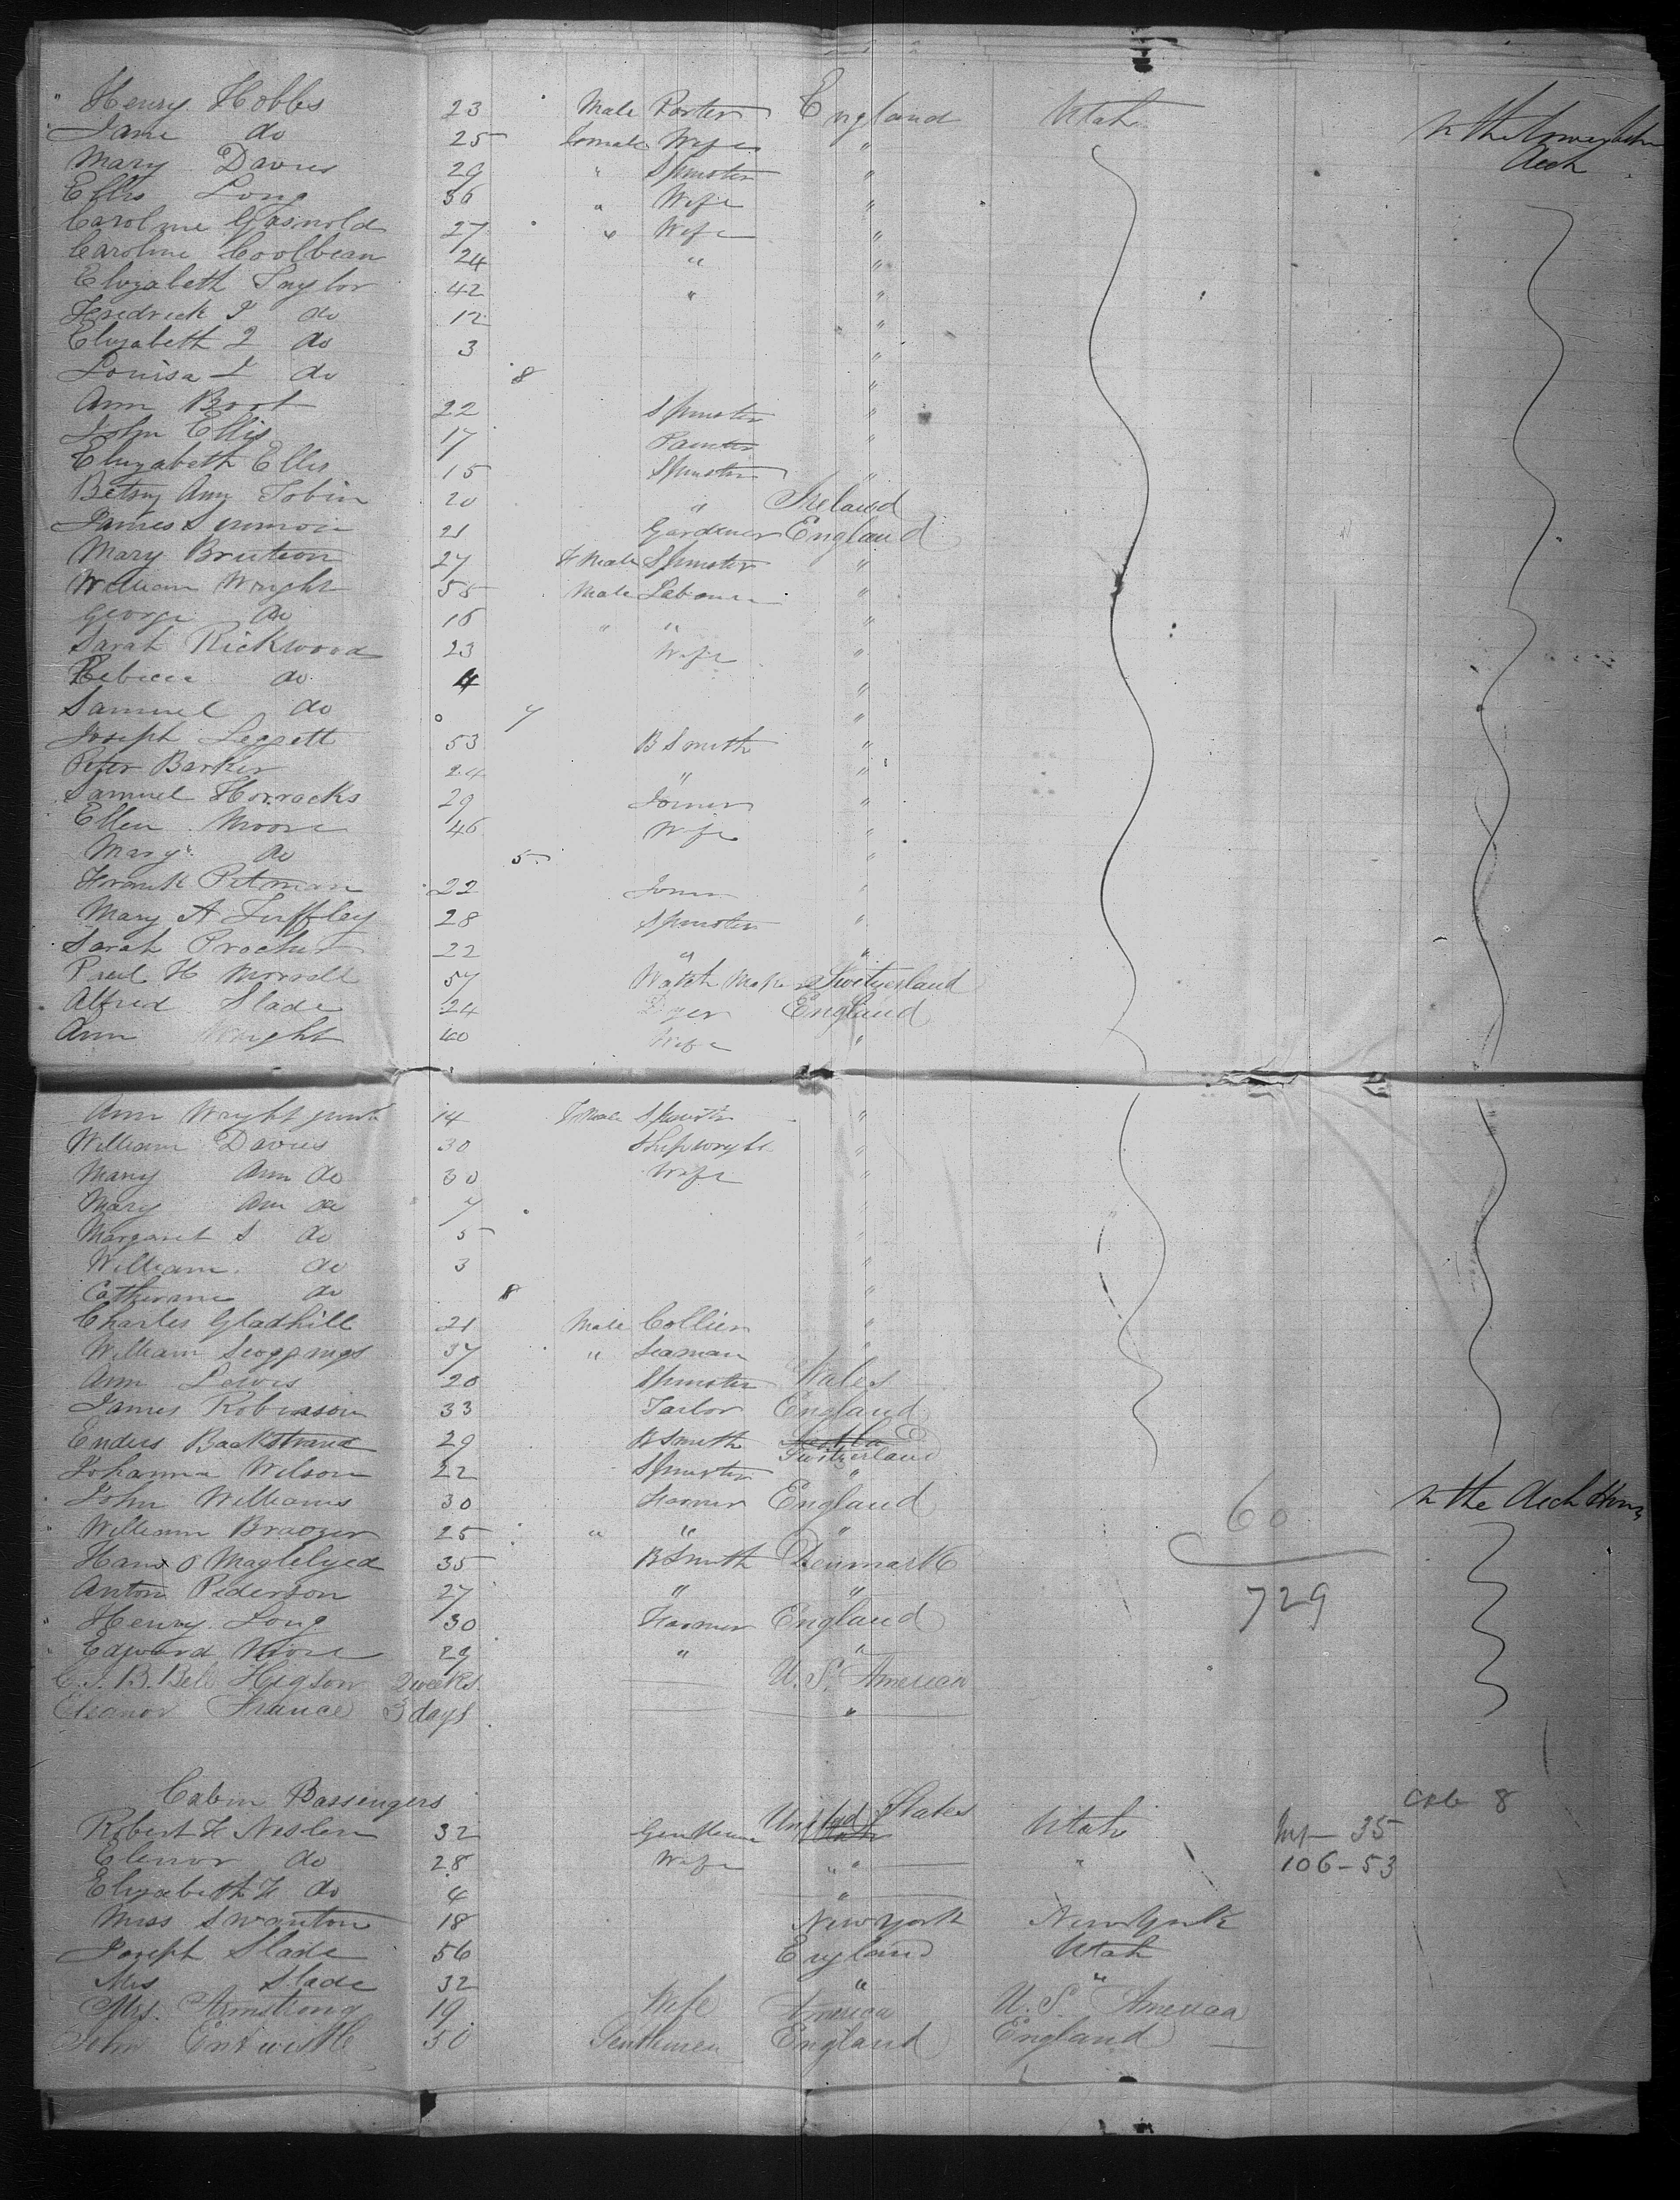 Henry Hobbs 23 Male Porter England Utah In the lower
Jane do 25 Female Wife " Deck
Mary Davies 29 " Spinster "
Ellis Long 36 " Wife "
Caroline Gasnold 27 " Wife "
Caroline Coolbean 24 " "
Elizabeth Taylor 42 " "
Fredrick J do 12 "
Elizabeth I do 3 "
Louisa I do 8 "
Ann Boot 22 Spinster "
John Ellis 17 Painter "
Elizabeth Ellis 15 Spinster "
Betsy Ann Tobin 20 " Ireland
James 21 Gardener England
Mary Bruton 27 F Male Spinster "
William Wright 55 Male Labourer "
George do 16 " " "
Sarah Rickwood 23 Wife "
Rebecca do 4 "
Samuel do 7 "
Joseph Leggett 53 B Smith "
Peter Barker 24 " "
Samuel Horrocks 29 Joiner "
Ellen Moore 46 Wife "
Mary do 5 "
Frank Pitman 22 Joiner "
Mary A Tuffley 28 Spinster "
Sarah Procter 22 " "
Paul H Morrell 57 Watch Maker Switzerland
Alfred Slade 24 Dyer England
Ann Wright 40 Wife "
Ann Wright 14 Female Spinster "
William Davies 30 Shipwryht "
Mary Ann do 30 Wife "
Mary Ann do 7 "
Margaret S do 5 "
William do 3 "
Catherine do 8 "
Charles Gladhill 21 Male Collier "
William Scoggings 37 " Seaman "
Ann Lewis 20 Spinster Wales
James Robinson 33 Tailor England
Enders Backstrand 29 B Smith Switzerland
Johanna Wilson 22 Spinster "
John Williams 30 Farmer England 60 In the Deck House
William 25 " " "
Hans O 35 B Smith Denmark
Anton Pederson 27 " " 729
Henry Long 30 Farmer England
Edward More 29 " "
C. J. B. Bell Higson 2 weeks U. S. America
Eleanor France 3 days "
Cabin Passengers
8
Robert F Neslen 32 Gentleman United States Utah 35
Elenor do 28 Wife " " " 106-53
Elizabeth F do 4 "
Miss Swanton 18 New York New York
Joseph Slade 56 England Utah
Mrs Slade 32 " "
Mrs. Armstrong 19 Wife America U. S. America
John Entwistle 50 Gentlemen England England